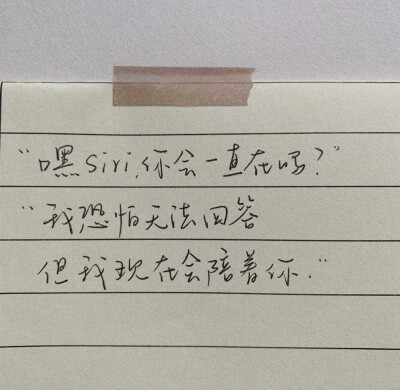 “嘿 siri,你会一直在吗?”
“我恐怕无法回答
但我现在会陪着你.”